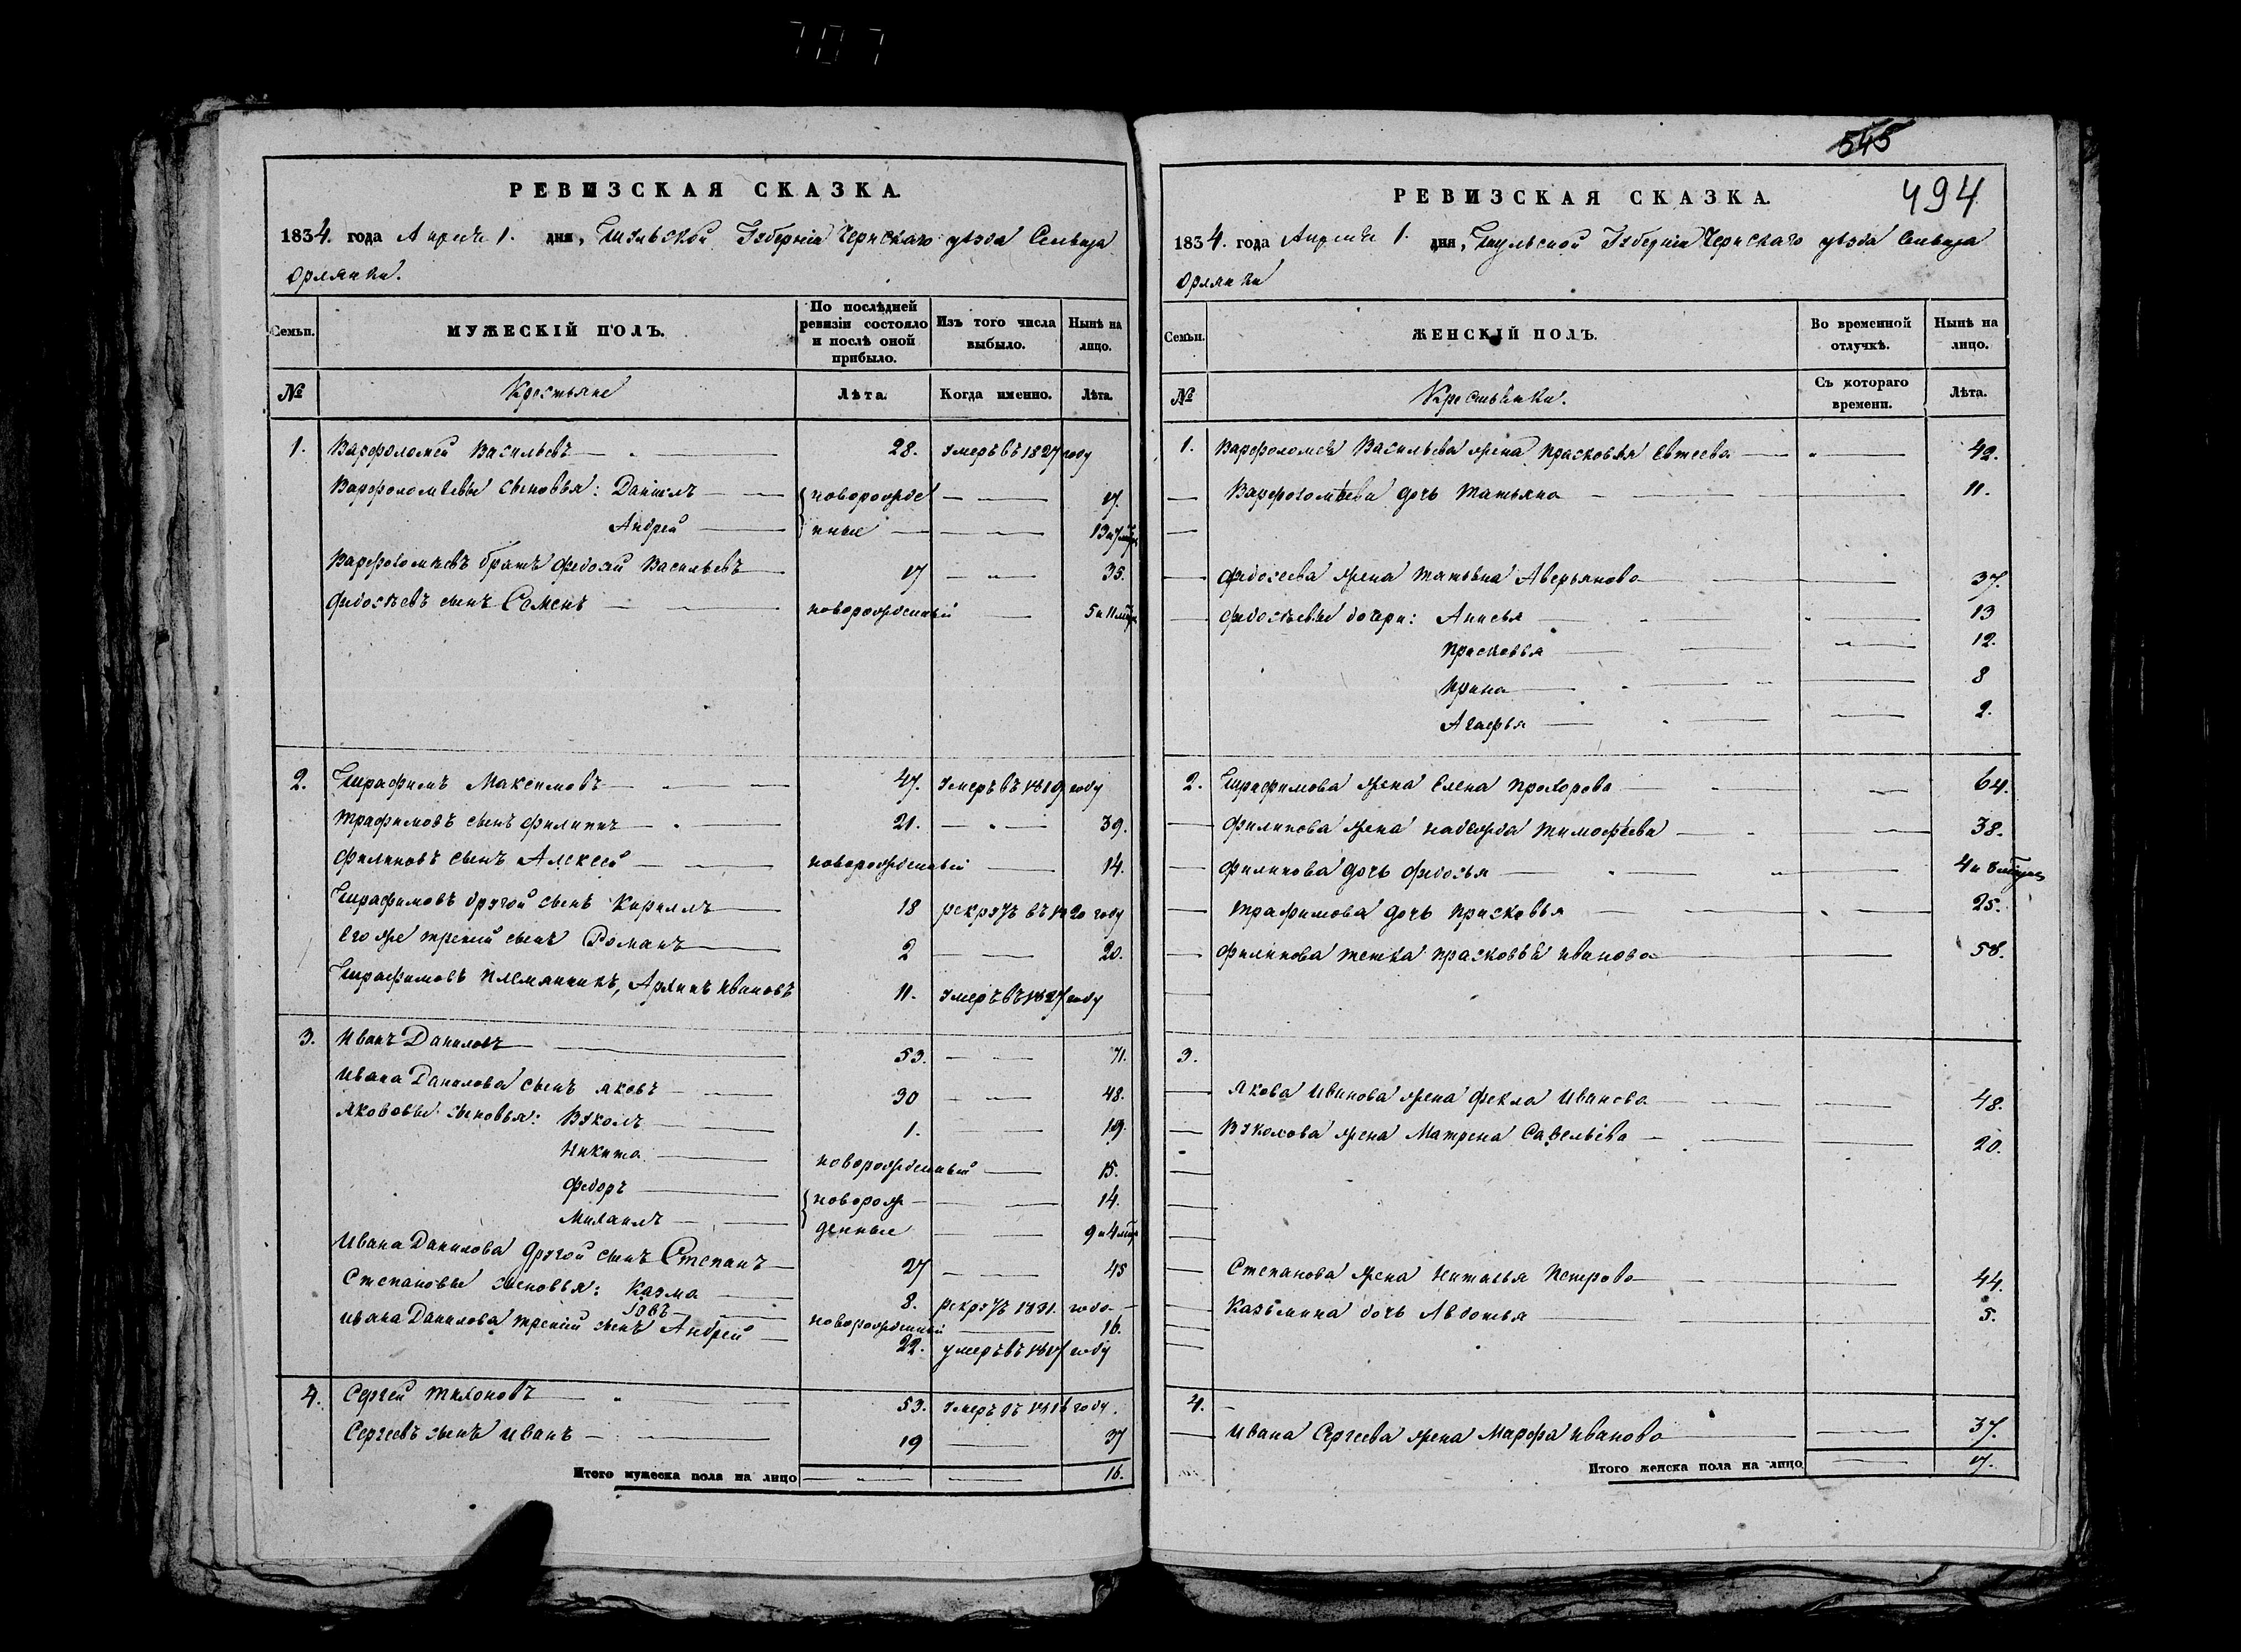 707
РЕВИЗСКАЯ СКАЗКА.
1834. года Апреля 1. дня, Тульской Губерніи Чернскаго уѣзда Сельца
Орлянки.
Семьи.
МУЖЕСКІЙ ПОЛЪ.
По послѣдней ревизіи состояло и послѣ оной прибыло.
Изъ того числа выбыло.
Нынѣ на лицо.
№
Крестьяне
Лѣта.
Когда именно.
Лѣта.
1. Варфоломей Васильевъ 28. умеръ въ 1827 году
Варфоломѣевы сыновья: Данiилъ новорожде 17.
Андрей нные 13 и 7 мѣс
Варфоломѣевъ братъ Федосѣй Васильевъ 17 35.
Федосѣевъ сынъ Семенъ новорожденный 5 и 11 мѣс
2. Трафимъ Максимовъ 47. умеръ въ 1819 году
Трафимовъ сынъ Филиппъ 21. 39.
Филиповъ сынъ Алексей новорожденный 14.
Трафимовъ другой сынъ Кирилъ 18 рекрутъ въ 1820 году
Его же третій сынъ Романъ 2 20.
Трафимовъ племянникъ, Архипъ Ивановъ 11. умеръ въ 1827 году
3. Иванъ Даниловъ 53. 71.
Ивана Данилова сынъ Яковъ 30 48.
Якововы сыновья: Вуколъ 1. 19.
Никита новорожденный 15.
Федоръ новорож 14.
Михаилъ денные 9 и 4 мѣс
Ивана Данилова другой сынъ Степанъ 27 45
Степановы сыновья: Казма 8. рекрутъ 1831. года
Iовъ новорожденный 16.
Ивана Данилова третій сынъ Андрей 22. умеръ въ 1817 году
4. Сергей Тихоновъ 53. умеръ въ 1816 году.
Сергеевъ сынъ Иванъ 19 37
Итого мужеска пола на лицо 16.
545
494
РЕВИЗСКАЯ СКАЗКА.
1834. года Апреля 1. дня, Тульской Губерніи Чернскаго уѣзда Сельца
Орлянки
Семьи.
ЖЕНСКІЙ ПОЛЪ.
Во временной отлучкѣ.
Нынѣ на лицо.
№
Крестьянки.
Съ котораго времени.
Лѣта.
1. Варфоломея Васильева жена Прасковья Евтеева 42.
Варфоломѣева дочь Татьяна 11.
Федосеева жена Татьяна Аверьянова 37.
Федосѣевы дочери: Анисья 13
Прасковья 12.
Ирина 8
Агафья 2.
2. Трафимова жена Елена Прохорова 64.
Филипова жена Надежда Тимофѣева 38.
Филипова дочь Федосья 4 и 8 мѣсяц
Трафимова дочь Прасковья 25.
Филипова тетка Прасковья Иванова 58.
3.
Якова Иванова жена Фекла Иванова 48.
Вуколова жена Матрена Савельева 20.
Степанова жена Наталья Петрова 44.
Казьмина дочь Авдотья 5.
4.
Ивана Сергеева жена Марфа Иванова 37.
Итого женска пола на лицо 17.